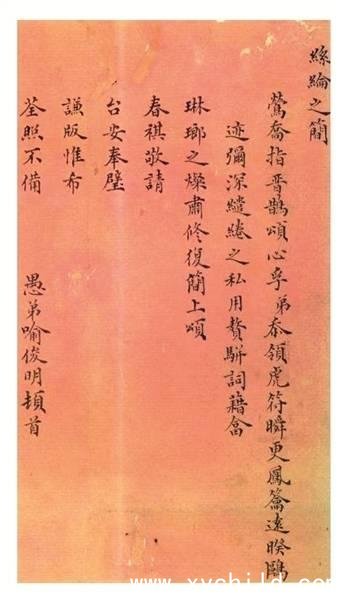 絲綸之簡
鶯喬指晉鵲頌心孚弟忝領虎符瞬更鳳籥遠暌鷗
迹彌深繾綣之私用贅駢詞藉畣
琳瑯之燦肅修復簡上頌
春祺敬請
台安奉璧
謙版惟布
荃照不備 愚弟喻俊明頓首